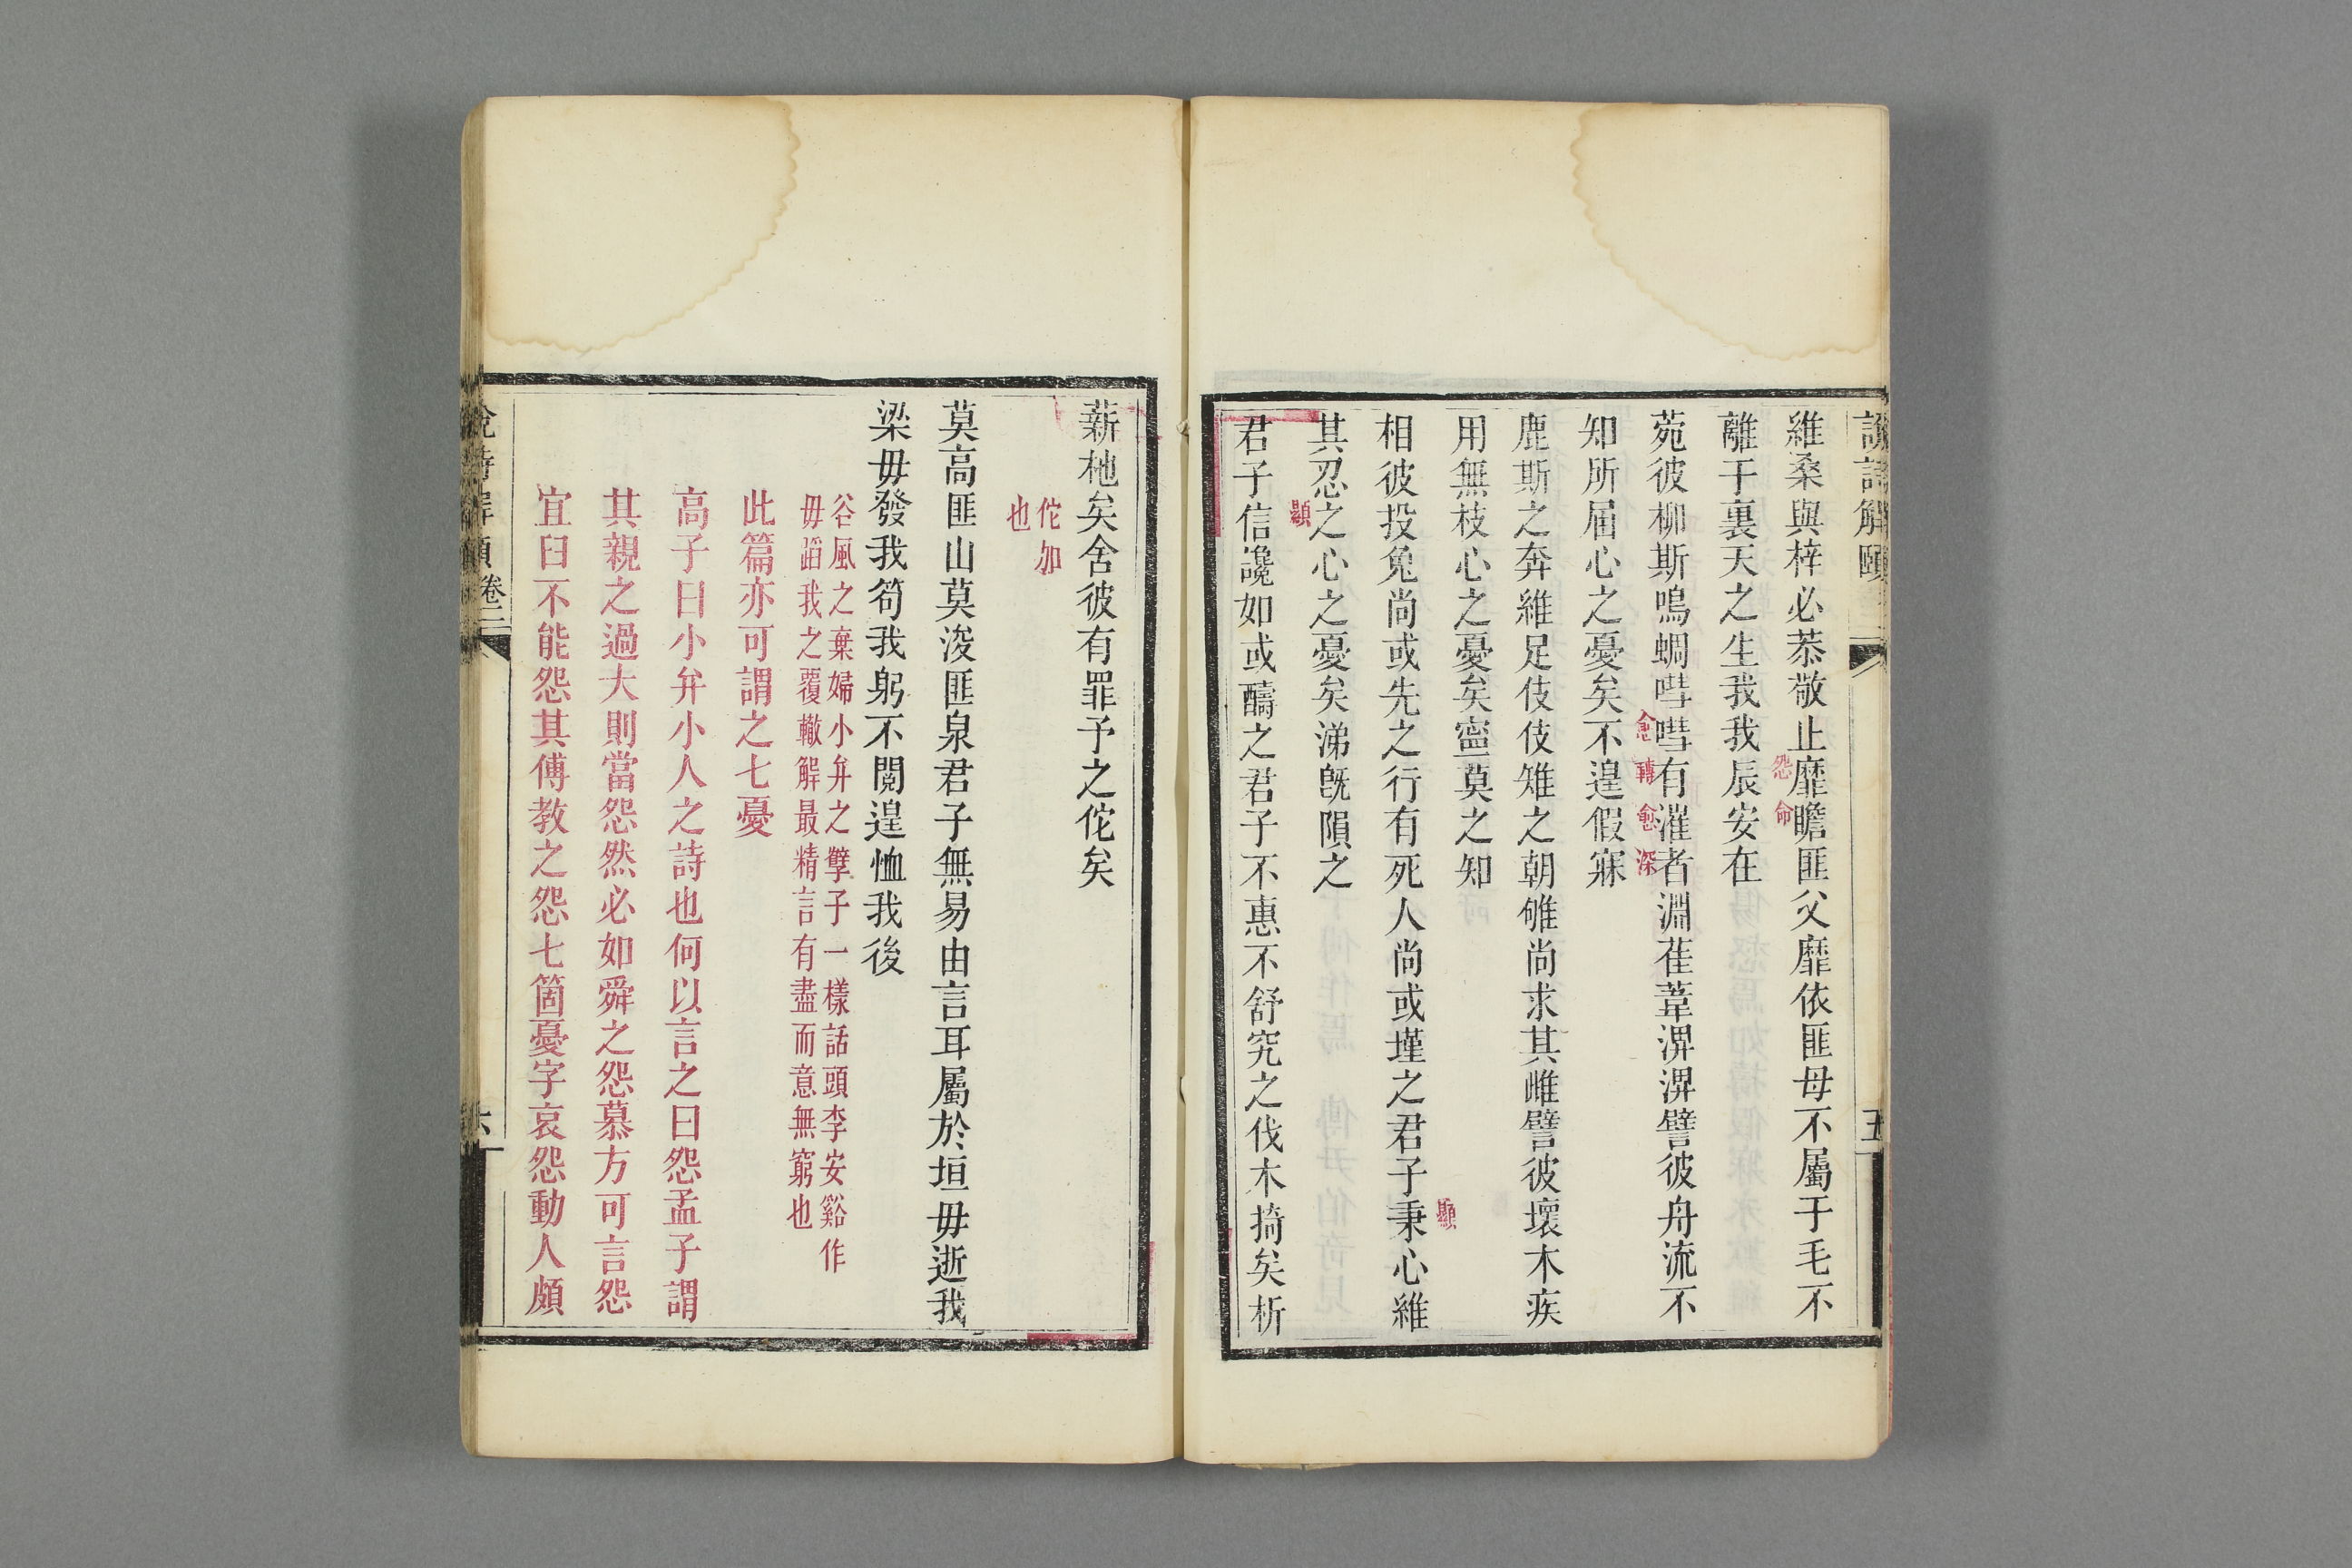 說詩解頤
五
維桑與梓必恭敬止靡瞻匪父靡依匪母不屬于毛不
怨命
離于裏天之生我我辰安在
菀彼柳斯鳴蜩嘒嘒有漼者淵萑葦淠淠譬彼舟流不
愈轉愈深
知所届心之憂矣不遑假寐
鹿斯之奔維足伎伎雉之朝雊尚求其雌譬彼壞木疾
用無枝心之憂矣寧莫之知
相彼投兔尚或先之行有死人尚或墐之君子秉心維
顯
其忍之心之憂矣涕旣隕之
顯
君子信讒如或醻之君子不惠不舒究之伐木掎矣析
薪杝矣舍彼有罪予之佗矣
佗加
也
莫高匪山莫浚匪泉君子無易由言耳屬於垣毋逝我
梁毋發我笱我躬不閱遑恤我後
谷風之棄婦小弁之孽子一樣話頭李安谿作
毋蹈我之覆轍解最精言有盡而意無窮也
此篇亦可謂之七憂
高子曰小弁小人之詩也何以言之曰怨孟子謂
其親之過大則當怨然必如舜之怨慕方可言怨
宜臼不能怨其傅教之怨七箇憂字哀怨動人頗
卷二
六